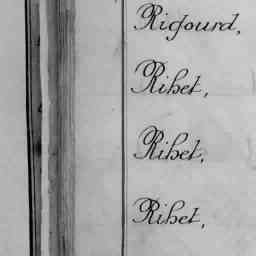 Rigourd,
Rihet,
Rihet,
Rihet,